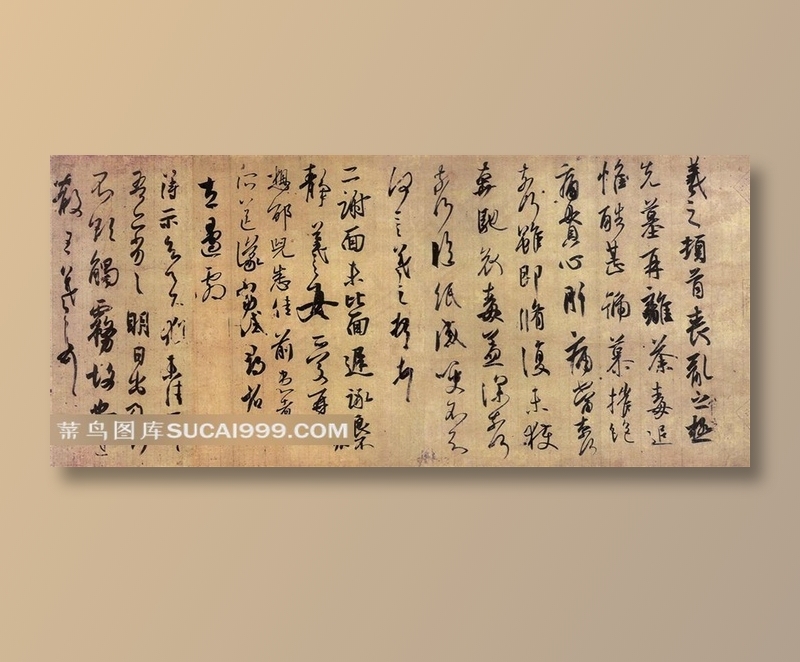 羲之頓首喪亂之極
先墓再離荼毒追
惟酷甚號慕摧絕
痛貫心肝痛當奈
奈何雖即脩復未獲
奔馳哀毒益深奈何
奈何臨紙感哽不知
何言羲之頓首
二謝面未比面遲詠良不
靜羲之女愛再
想邵兒悉佳前患者
善
得示知足下猶未佳
吾亦劣劣明日出乃
不欲觸霧故也遲
散王羲之
菜鸟图库SUCAI999.COM